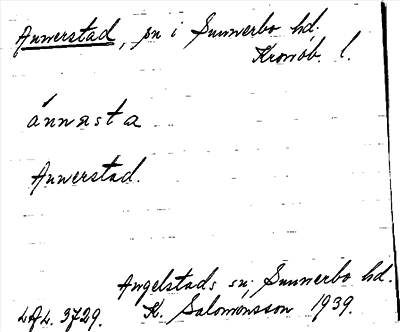 Annerstad, sn i Sunnerbo hd.
Kronob. l.
ánnasta
Annerstad.
Angelstads sn, Sunnerbo hd.
K. Salomonsson 1939.
3729.